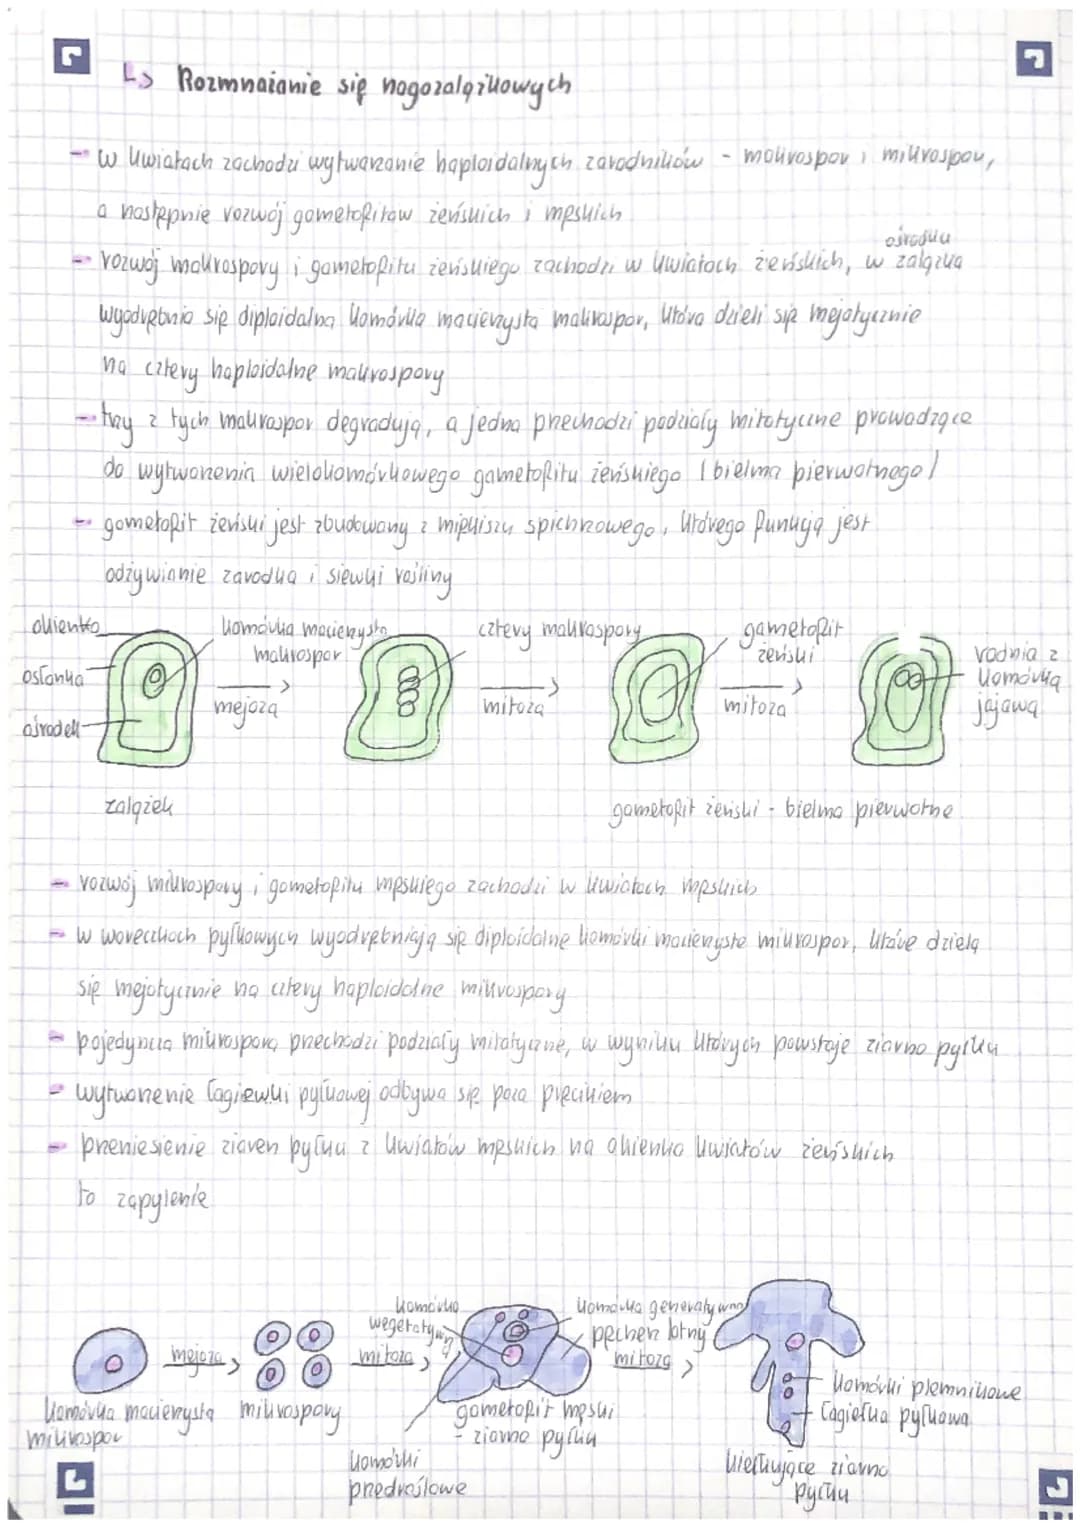 Rozmnażanie się nagozalążkowych
- w kwiatach zachodzi wytwarzanie haploidalnych zarodników - makrospor i mikrospor,
a następnie rozwój gametofitów żeńskich i męskich
ośrodku
- rozwój makrospory i gametofitu żeńskiego zachodzi w kwiatach żeńskich, w zalążka
wyodrębnia się diploidalna komórka macierzysta makrospor, która dzieli się mejotycznie
na cztery haploidalne makrospory
- trzy z tych makrospor degradują, a jedna przechodzi podziały mitotyczne prowadzące
do wytworzenia wielokomórkowego gametofitu żeńskiego (bielma pierwotnego)
- gametofit żeński jest zbudowany z miękiszu spichrzowego, którego funkcją jest
odżywianie zarodka i siewki rośliny
okienko
osłonka
ośrodek
zalążek
komórka macierzysta
makrospor
mejoza
cztery makrospory
mitoza
gametofit
żeński
mitoza
rodnia z
komórką
jajową
gametofit żeński - bielmo pierwotne
- rozwój mikrospory i gametofitu męskiego zachodzi w kwiatach męskich
- w woreczkach pyłkowych wyodrębniają się diploidalne komórki macierzyste mikrospor, które dzielą
się mejotycznie na cztery haploidalne mikrospory
- pojedyncza mikrospora przechodzi podziały mitotyczne, w wyniku których powstaje ziarno pyłku
- wytworzenie łagiewki pyłkowej odbywa się poza pręcikiem
- przeniesienie ziaren pyłku z kwiatów męskich na okienko kwiatów żeńskich
to zapylenie
komórka macierzysta
mikrospor
mejoza
mikrospory
mitoza
komórka
wegetatywna
komórki
przedroślowe
gametofit męski
- ziarno pyłku
komórka generatywna
pęcherz lotny
mitoza
komórki plemnikowe
łagiełka pyłkowa
kiełkujące ziarno
pyłku